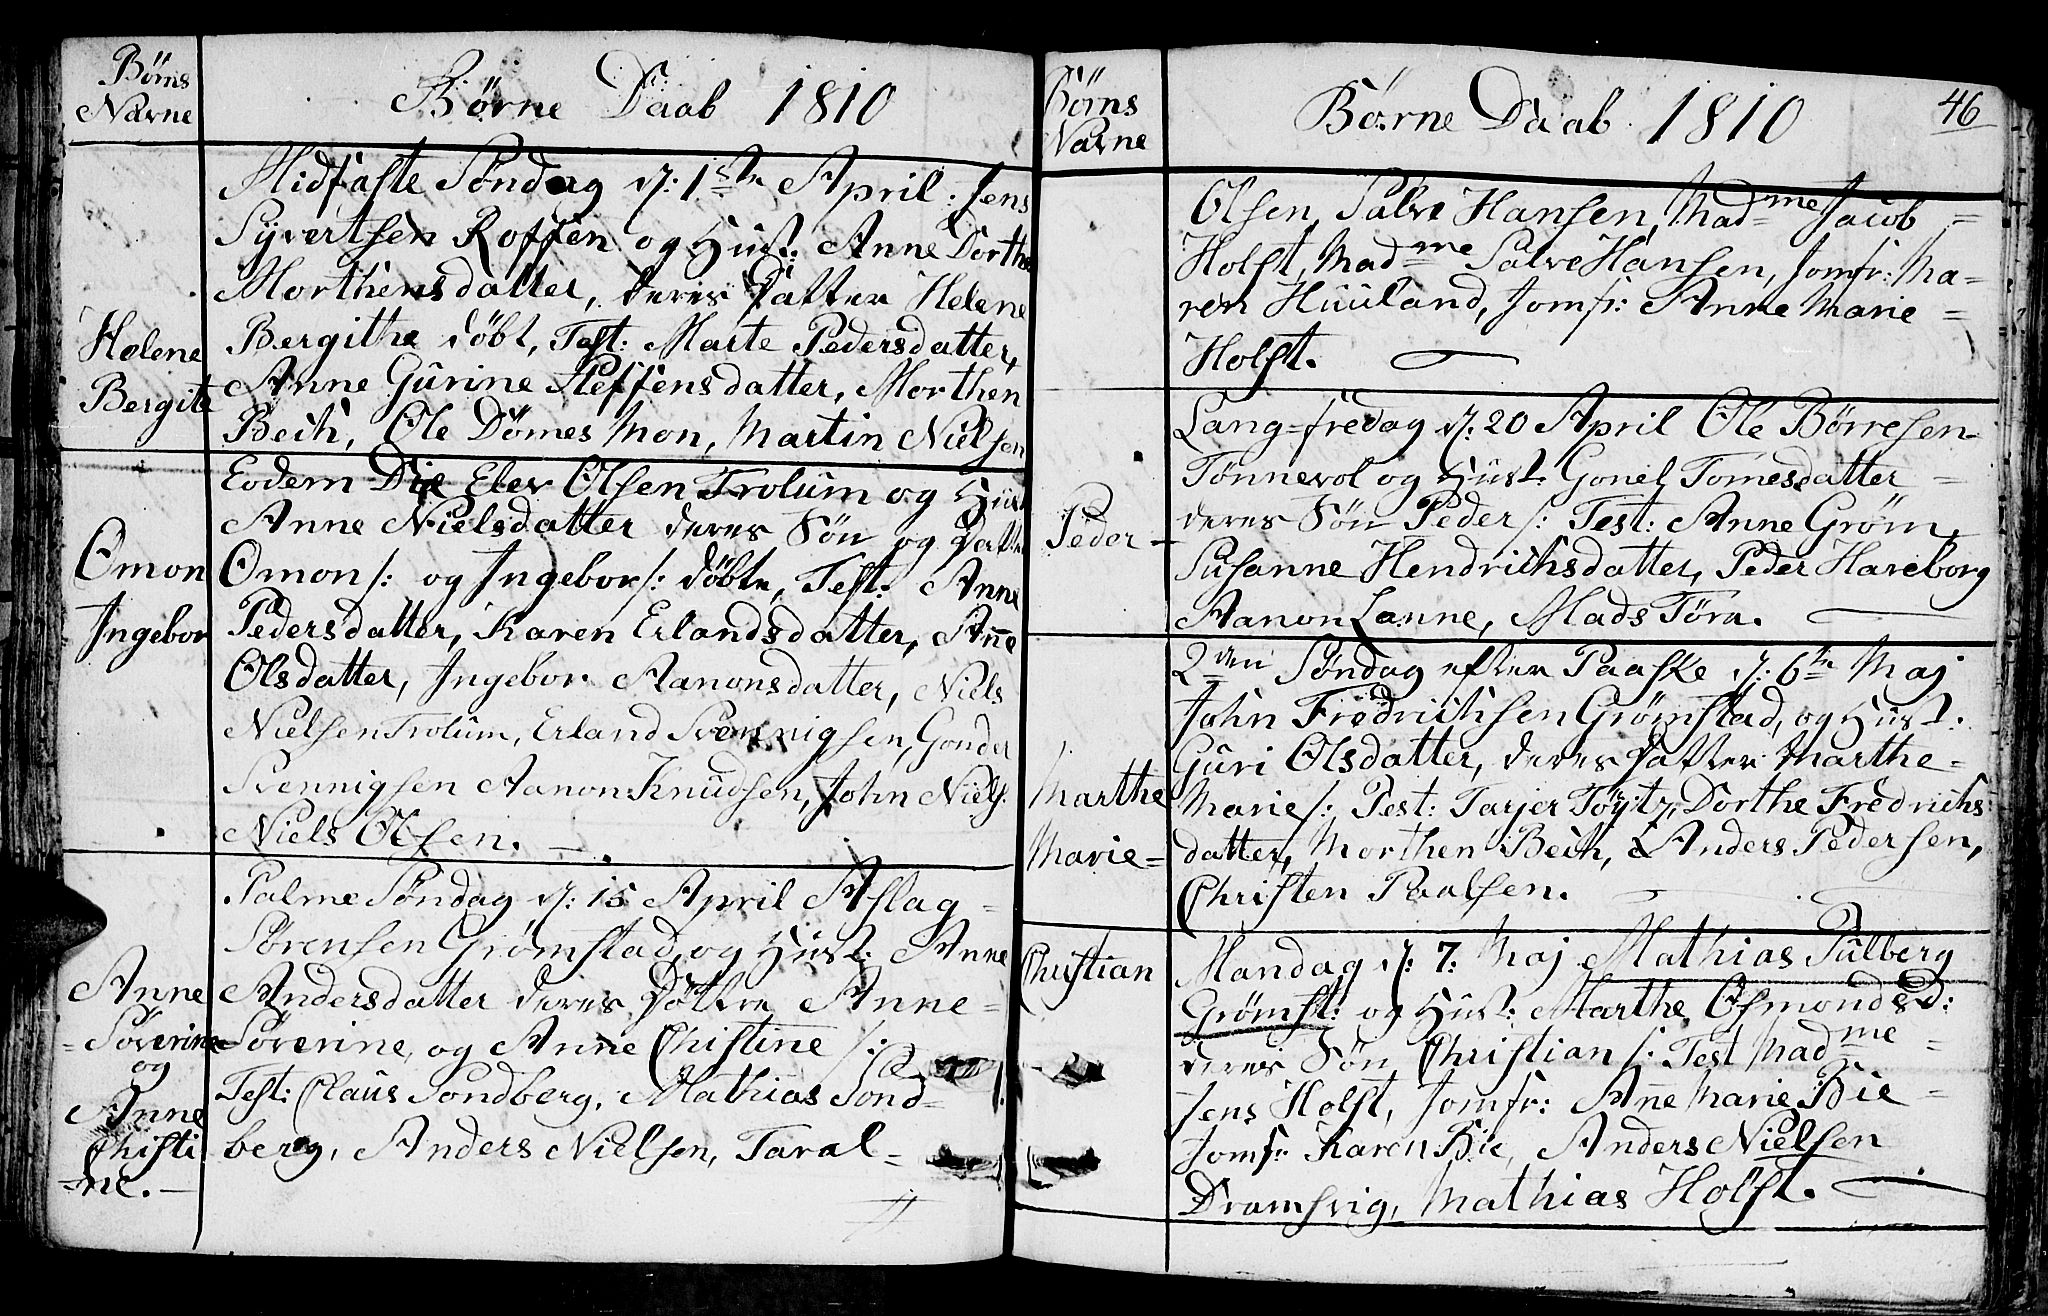 Børns
Navne
Børne Daab 1810
Midfaste Søndag d: 1ste April: Jens
Syvertsen Roffen og Hust: Anne Dorthe
Morthensdatter, deres Datter Helene
Helene
Bergithe døbt, Test: Marte Pedersdatter,
Bergite
Anne Gurine Steffensdatter, Morthen
Bech, Ole Dømesmon, Martin Nielsen
Eodem Die Elev Olsen Trolum og Hust
Anne Nielsdatter deres Søn og Datter
Omon
Omon /: og Ingebor /: døbte, Test: Anne
Ingebor
Pedersdatter, Karen Erlandsdatter, Anne
Olsdatter, Ingebor Aanonsdatter, Niels
Nielsen Trolum, Erland Svennigsen, Gonder
Svennigsen Aanon Knudsen, John Niels:
Niels Olsen.
Palme Søndag d: 15 April Aslag
Sørensen Grømstad og Hust: Anne
Anne
Søverine
og
Anne
Christi
ne.
Andersdatter deres Døttre Anne=
Søverine, og Anne Christine /:
Test: Claus Sondberg, Mathias Sond=
berg, Anders Nielsen, Taral=
Børns
Navne
Børne Daab 1810
46
Olsen, Salve Hansen, Madme Jacob
Holst, Madme Salve Hansen, Jomfr: Ma=
ren Huuland, Jomfr: Anne Marie=
Holst.
Lang=fredag d: 20 April Ole Børresen
Tønnevol og Hust: Gonel Tomesdatter
Peder
deres Søn Peder /: Test: Anne Grøm,
Susanne Hendrichsdatter, Peder Hareborg
Aanon Lanne, Mads Töra.
2den Søndag efter Paaske d: 6te Maj
John Fredrichsen Grømstad, og Hust:
Guri Olsdatter, deres Datter Marthe=
Marthe
Marie=
Marie /: Test: Tarjer Töytz, Dorthe Fredrichs
datter, Morthen Bech, Anders Pedersen,
Christen Paalsen.
Christian
Mandag d: 7: Maj Mathias Sulberg
Grømst: og Hust: Marthe Osmondsd:
deres Søn Christian /: Test Madme
Jens Holst, Jomfr: Anne Marie Bie
Jomfr: Karen Bie, Anders Nielsen
Dramsvig, Mathias Holst.